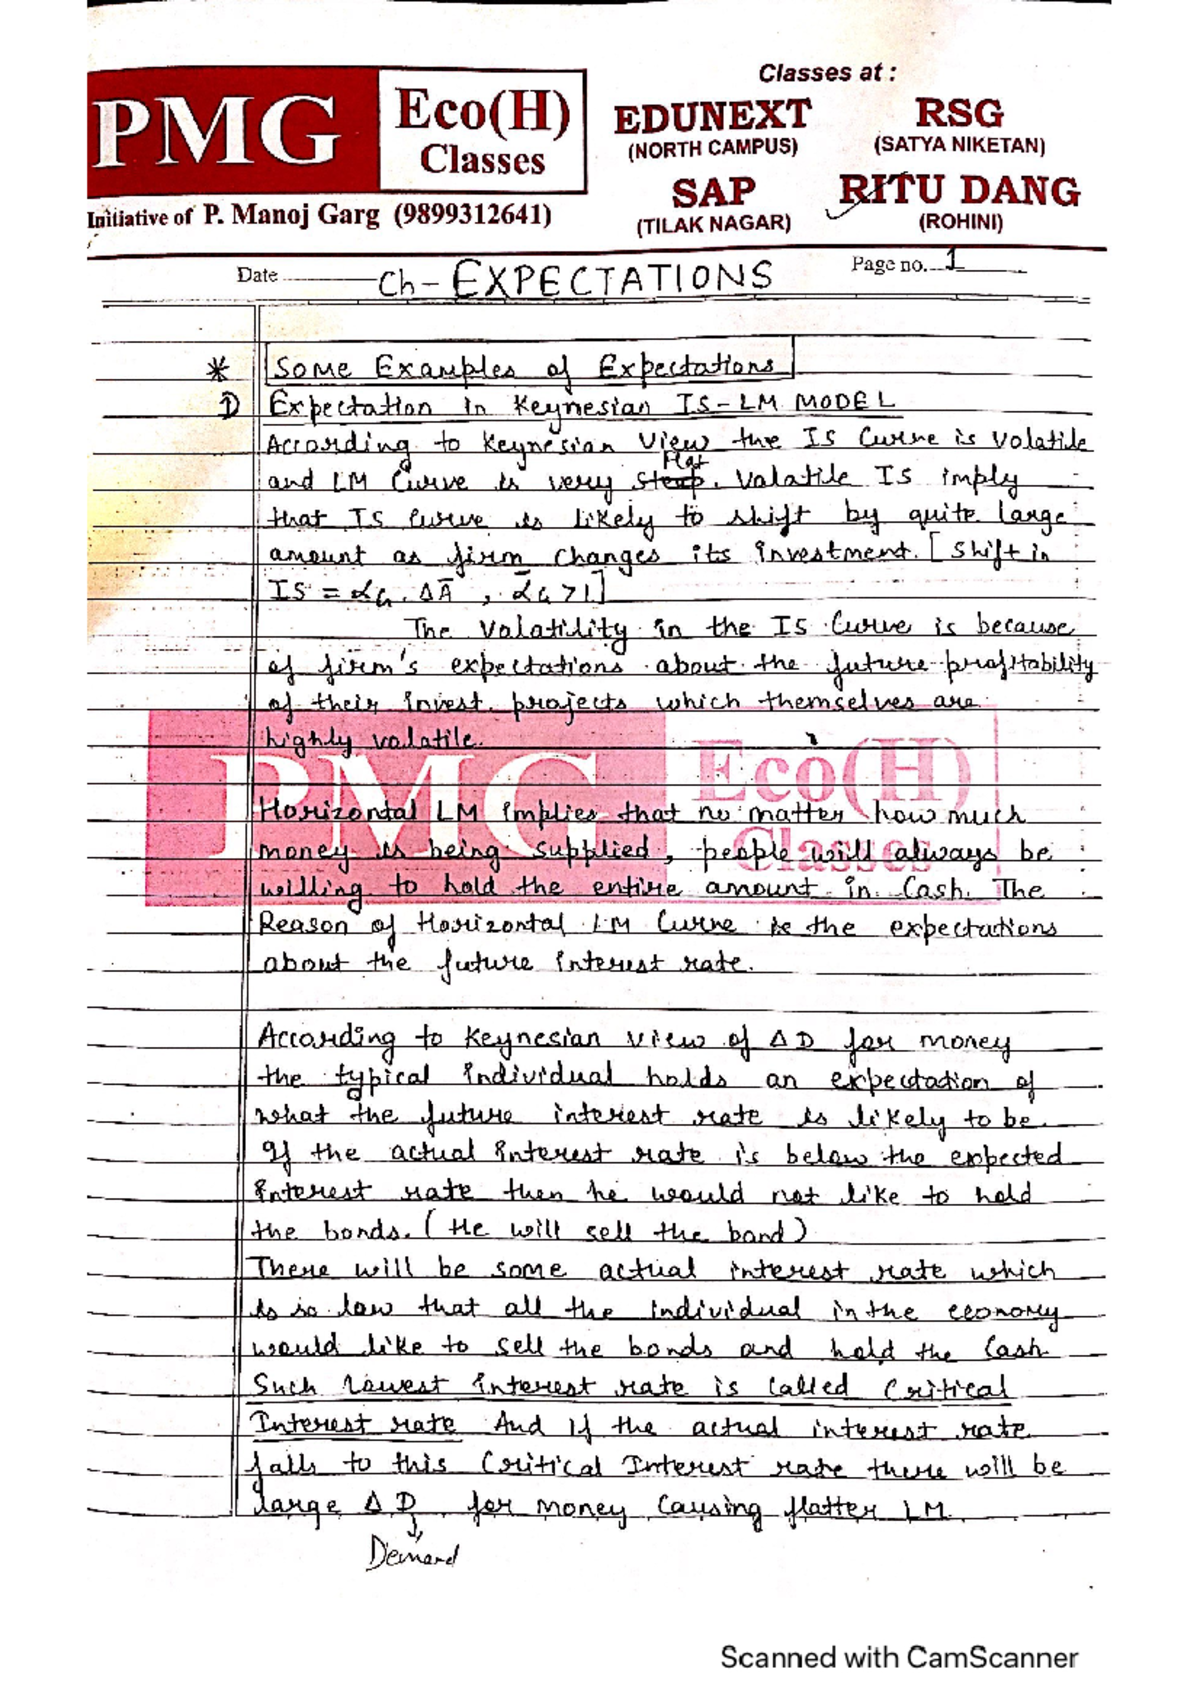 Classes at :
PMG Eco(H) Classes
EDUNEXT RSG
(NORTH CAMPUS) (SATYA NIKETAN)
SAP RITU DANG
(TILAK NAGAR) (ROHINI)
Initiative of P. Manoj Garg (9899312641)
Date Ch - EXPECTATIONS Page no. 1
* Some Examples of Expectations
1) Expectation in Keynesian IS-LM MODEL
According to Keynesian view the IS Curve is volatile
Flat
and LM Curve is very steep. Volatile IS imply
that IS Curve is likely to shift by quite large
amount as firm changes its investment. [Shift in
IS = αG . ΔĀ , αG > 1]
The volatility in the IS Curve is because
of firm's expectations about the future profitability
of their invest. projects which themselves are
highly volatile.
PMG Eco(H) Classes
Horizontal LM implies that no matter how much
money is being supplied, people will always be
willing to hold the entire amount in Cash. The
Reason of Horizontal LM Curve is the expectations
about the future interest rate.
According to Keynesian view of ΔD for money
the typical individual holds an expectation of
what the future interest rate is likely to be.
If the actual interest rate is below the expected
interest rate then he would not like to hold
the bonds. (He will sell the bond)
There will be some actual interest rate which
is so low that all the individual in the economy
would like to sell the bonds and hold the Cash
Such lowest interest rate is called Critical
Interest rate And if the actual interest rate
falls to this Critical Interest rate there will be
large ΔD for money causing flatter LM
Demand
Scanned with CamScanner